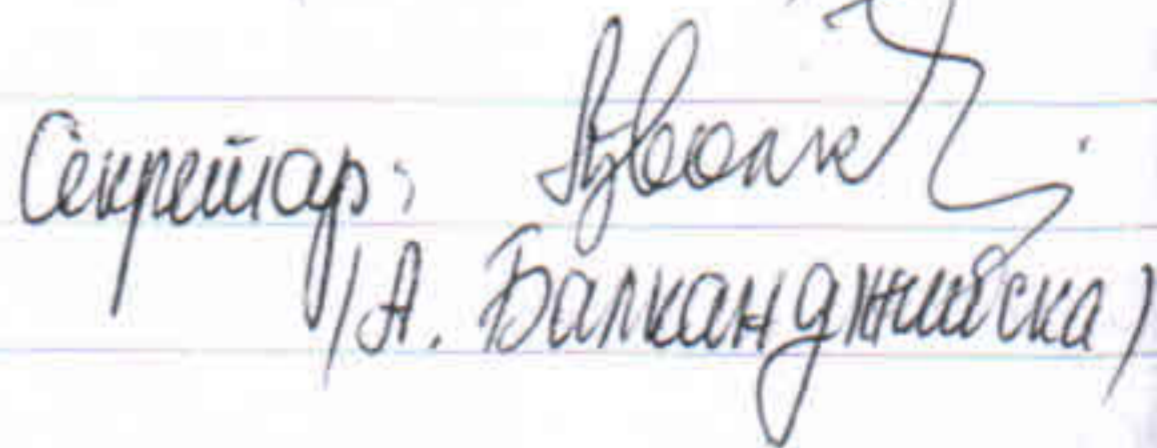 Секретар:
/А. Балканджийска/